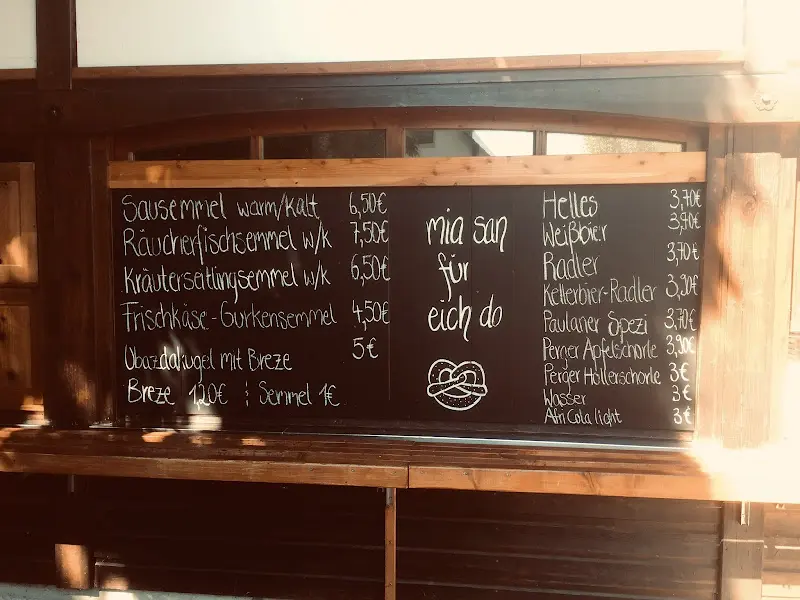 Sausemmel warm/kalt 6,50€
Räucherfischsemmel w/k 7,50€
Kräuterseitlingsemmel w/k 6,50€
Frischkäse-Gurkensemmel 4,50€
Obazdakugel mit Breze 5€
Breze 1,20€ Semmel 1€
mia san
für
eich do
Helles 3,70€
Weißbier 3,90€
Radler 3,70€
Kellerbier-Radler 3,90€
Paulaner Spezi 3,70€
Perger Apfelschorle 3,90€
Perger Hollerschorle 3€
Wasser 3€
Afri Cola light 3€